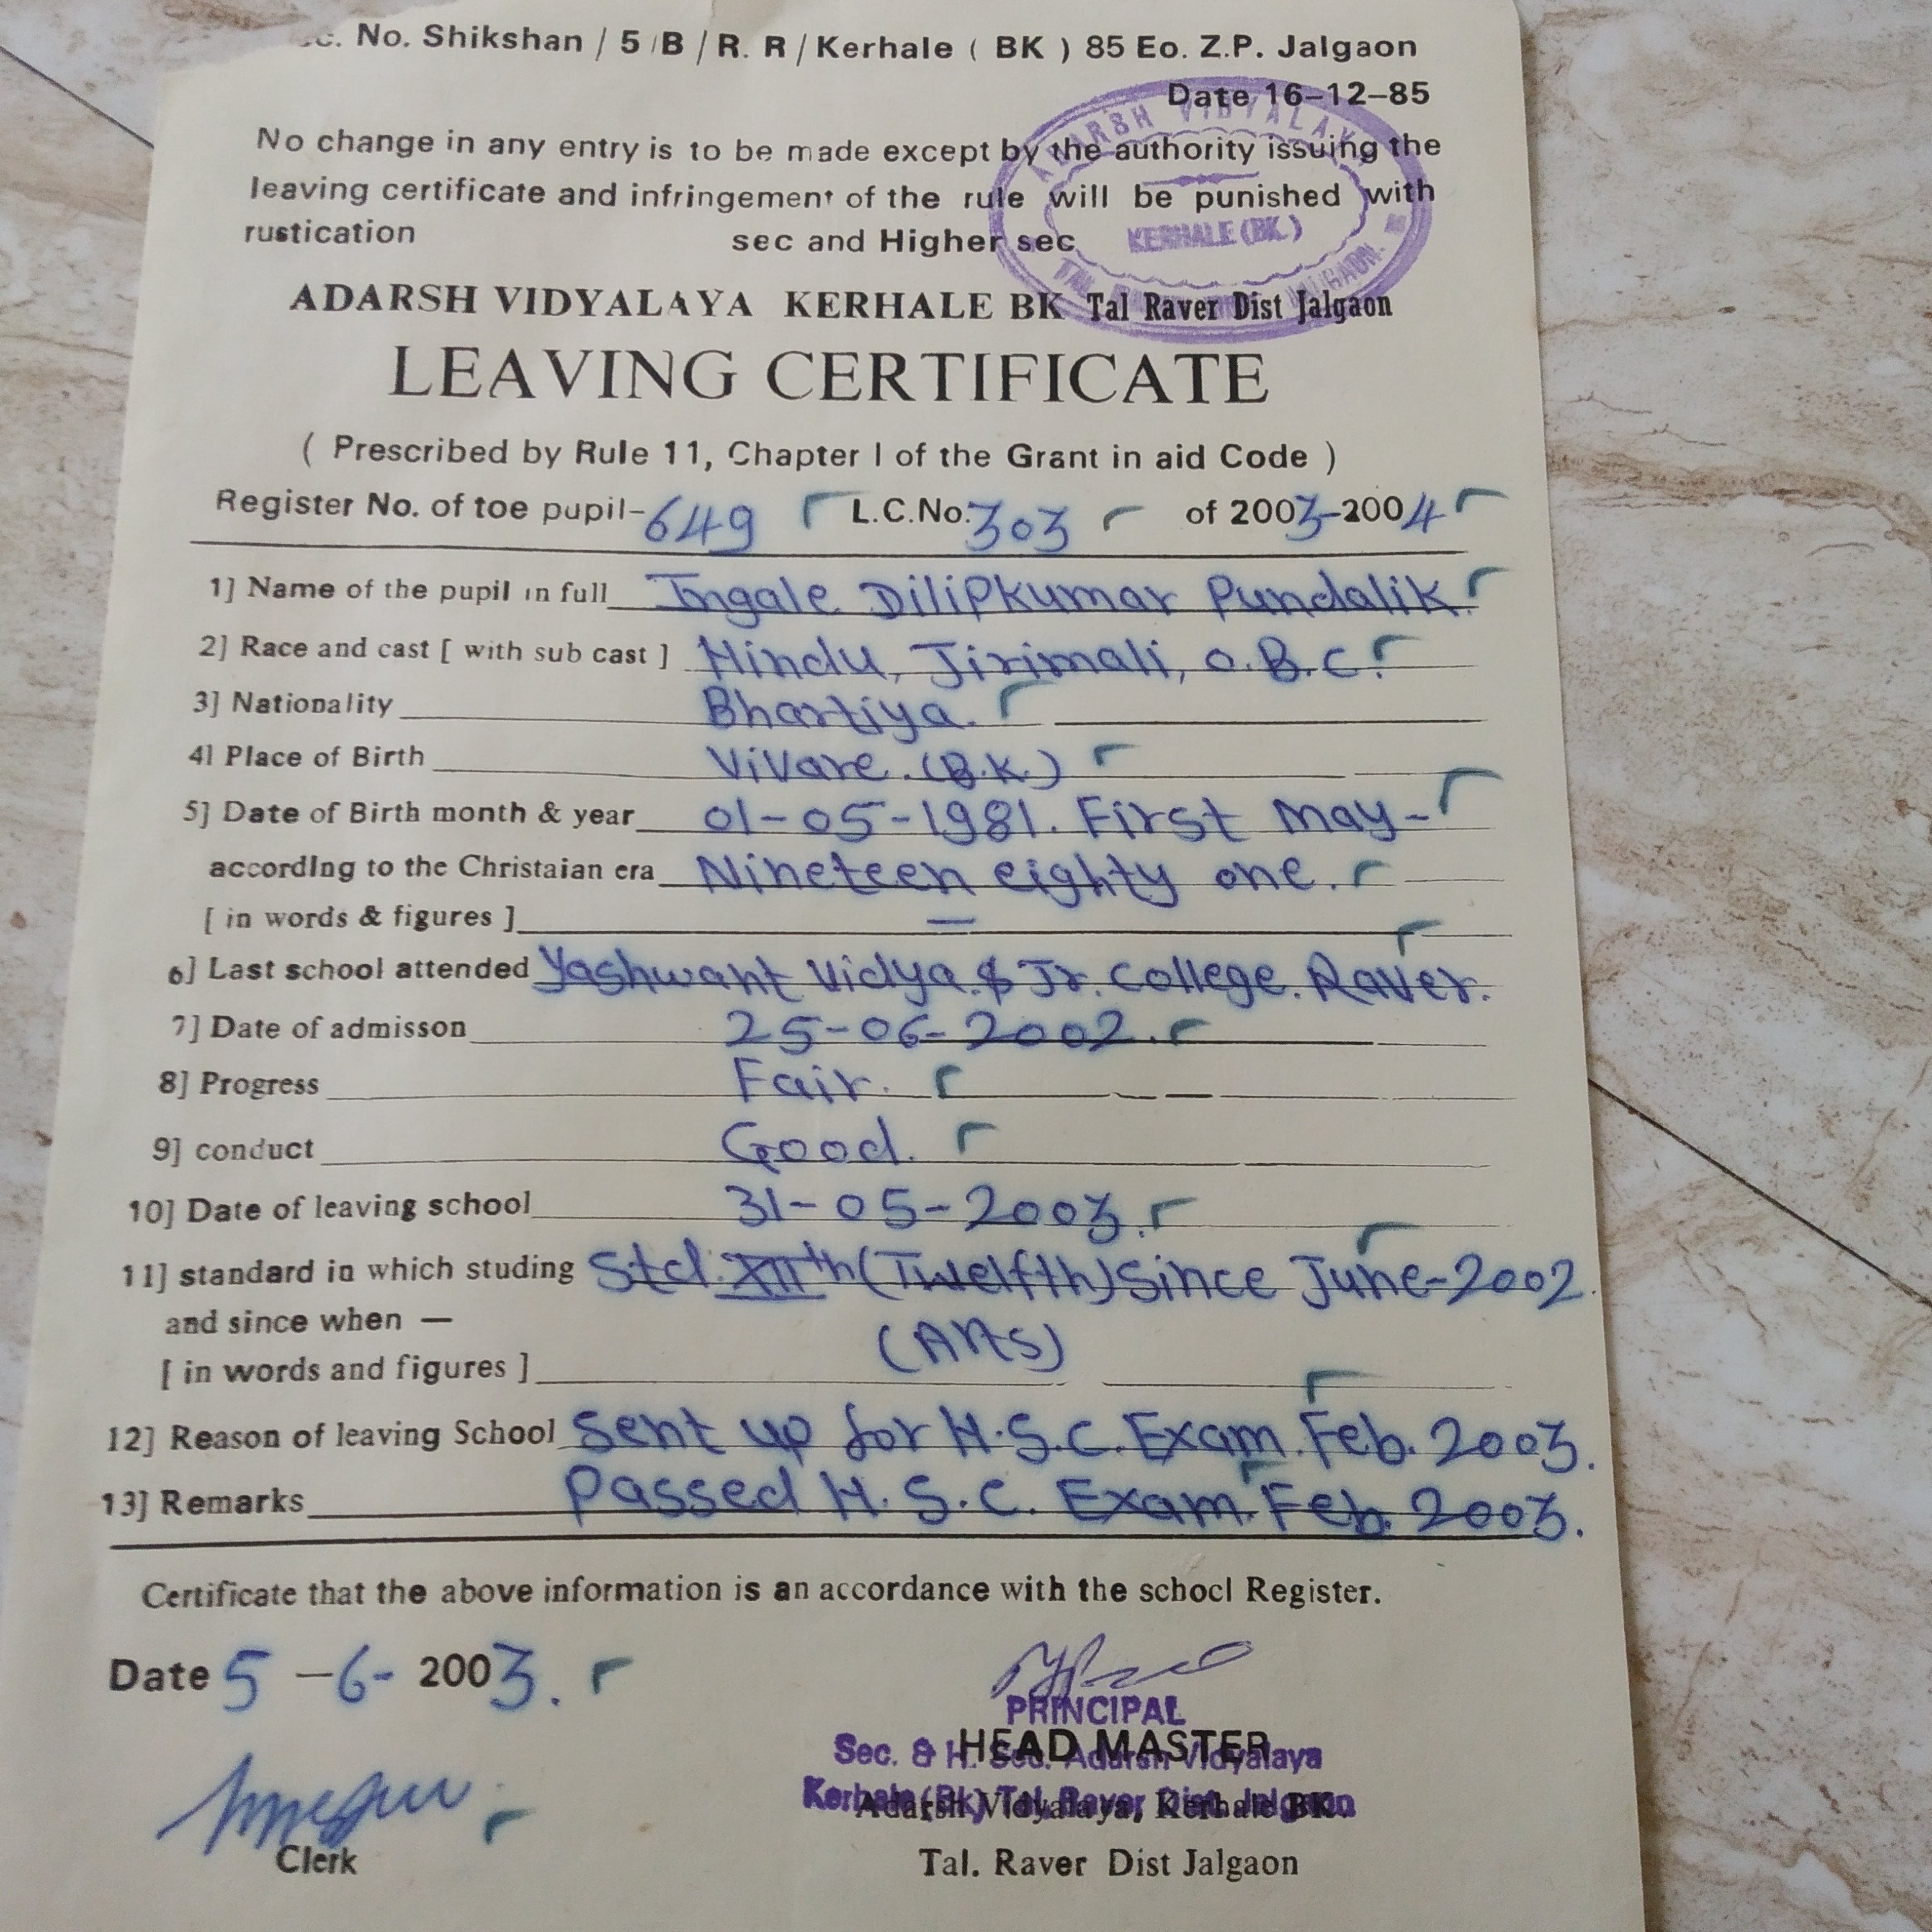 c. No. Shikshan / 5 / B / R. R / Kerhale ( BK ) 85 Eo. Z.P. Jalgaon
Date 16-12-85
No change in any entry is to be made except by the authority issuing the
leaving certificate and infringement of the rule will be punished with
rustication sec and Higher sec
ADARSH VIDYALAYA
KERHALE (BK.)
TAL. JALGAON.
ADARSH VIDYALAYA KERHALE BK Tal Raver Dist Jalgaon
LEAVING CERTIFICATE
( Prescribed by Rule 11, Chapter I of the Grant in aid Code )
Register No. of toe pupil- 649 L.C.No. 303 of 2003-2004
1] Name of the pupil in full Ingale Dilipkumar Pundalik.
2] Race and cast [ with sub cast ] Hindu, Jirimali, O.B.C.
3] Nationality Bhartiya.
4] Place of Birth Vivare.(B.K.)
5] Date of Birth month & year 01-05-1981. First may-
according to the Christaian era Nineteen eighty one.
[ in words & figures ] —
6] Last school attended Yashwant Vidya. & Jr. College. Raver.
7] Date of admisson 25-06-2002.
8] Progress Fair.
9] conduct Good.
10] Date of leaving school 31-05-2003.
11] standard in which studing Std. XIIth (Twelfth) Since June-2002.
and since when —
(Arts)
[ in words and figures ]
12] Reason of leaving School Sent up for H.S.C. Exam. Feb. 2003.
13] Remarks Passed H.S.C. Exam. Feb. 2003.
Certificate that the above information is an accordance with the school Register.
Date 5 -6- 2003.
PRINCIPAL
HEAD MASTER
Sec. & H. Sec. Adarsh Vidyalaya
Kerhale (Bk) Tal. Raver Dist. Jalgaon
Adarsh Vidyalaya, Kerhale BK.
Clerk
Tal. Raver Dist Jalgaon